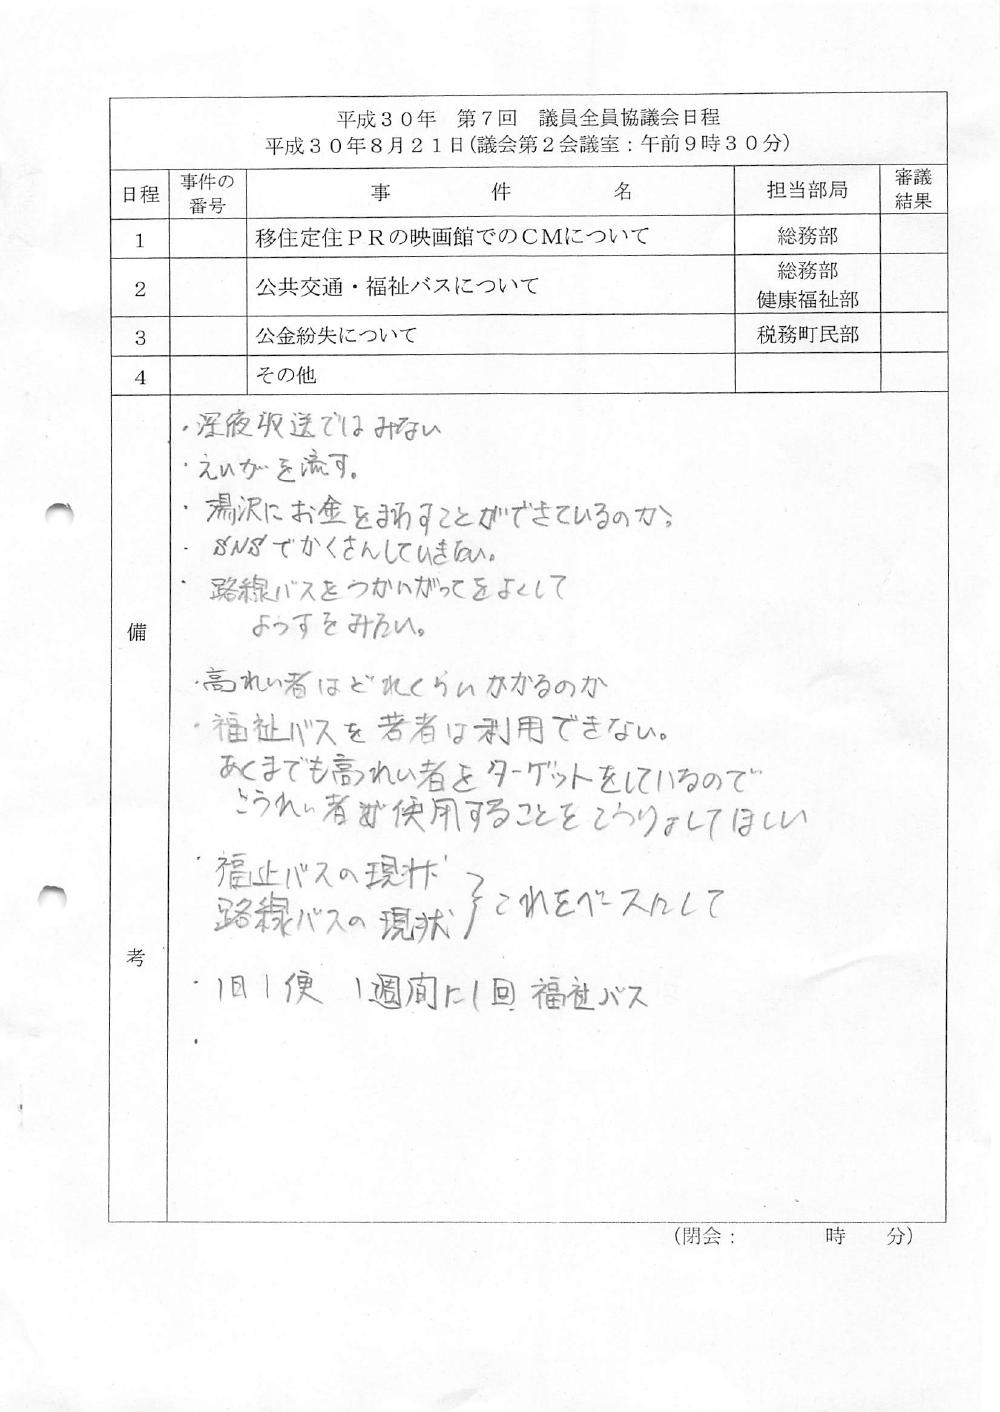 平成３０年　第７回　議員全員協議会日程
平成３０年８月２１日(議会第２会議室：午前９時３０分)
日程　事件の番号　事　件　名　担当部局　審議結果
１　移住定住ＰＲの映画館でのＣＭについて　総務部
２　公共交通・福祉バスについて　総務部　健康福祉部
３　公金紛失について　税務町民部
４　その他
備考
・深夜放送ではみない
・えいがを流す。
・湯沢にお金をまわすことができているのか。
・SNSでかくさんしていきたい。
・路線バスをつかいがってをよくして
ようすをみたい。
・高れい者はどれくらいかかるのか
・福祉バスを若者は利用できない。
あくまでも高れい者をターゲットをしているので
こうれい者が使用することをこうりょしてほしい
・福止バスの現状
路線バスの現状　}これをベースにして
・1日1便　1週間に1回　福祉バス
・
（閉会：　　時　　分）